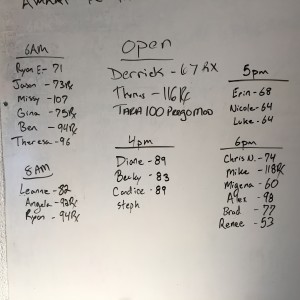 6AM
Ryan E - 71
Jason - 73Rx
Missy - 107
Gina - 75Rx
Ben - 94Rx
Theresa - 96
8AM
Leanne - 82
Angela - 93Rx
Ryan - 94Rx
Open
Derrick - 67 RX
Thomas - 116Rx
TARA 100 Prego mod
4pm
Diane - 89
Becky - 83
Candice - 89
Steph
5pm
Erin - 68
Nicole - 64
Luke - 64
6pm
Chris N. - 74
Mike - 118Rx
Migena - 60
Alex - 98
Brad - 77
Renee - 53